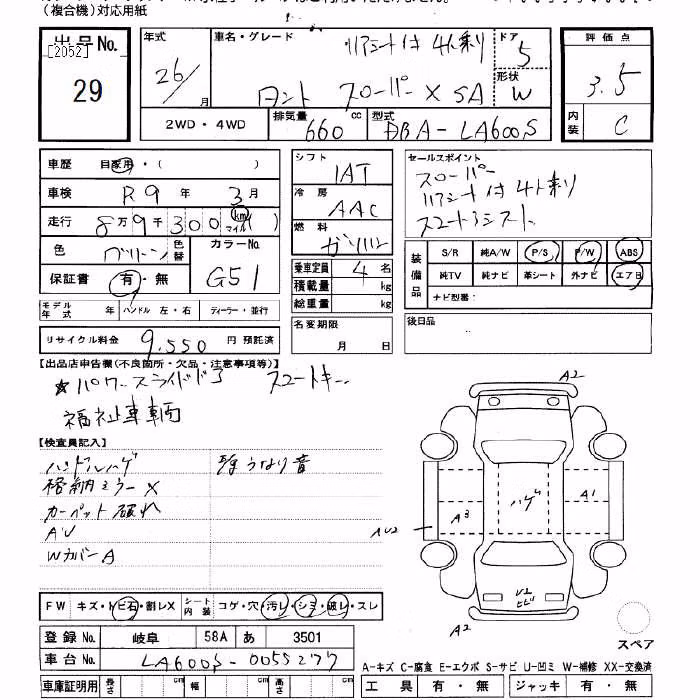 (複合機)対応用紙
出品No.
[2052]
29
年式
26/
月
車名・グレード
リアシート付 4人乗り
タント スローパー X SA
ドア
5
形状
W
評価点
3.5
内装
C
2WD・4WD
排気量
660
cc
型式
DBA-LA600S
車歴
自家用・( )
車検
R9 年 3 月
走行
8 万 9 千 3 0 0 km マイル ( )
色
グリーン
色替
カラーNo.
G51
保証書
有・無
モデル年式
年
ハンドル 左・右
ディーラー・並行
リサイクル料金
9.550
円 預託済
シフト
IAT
冷房
AAC
燃料
ガソリン
乗車定員
4 名
積載量
kg
総重量
kg
名変期限
月 日
セールスポイント
スローパー
リアシート付 4人乗り
スマートアシスト
装備品
S/R 純A/W P/S P/W ABS
純TV 純ナビ 革シート 外ナビ エアB
ナビ型番:
後日品
【出品店申告欄(不良箇所・欠品・注意事項等)】
☆パワースライドドア スマートキー
福祉車輌
【検査員記入】
ハンドルハゲ
格納ミラーX
カーペット破れ
AU
WカバーA
うなり音
FW キズ・トビ石・割レX
シート内装
コゲ・穴・汚レ・シミ・破レ・スレ
登録No.
岐阜 58A あ 3501
車台No.
LA600S-0055277
車庫証明用
長さ cm 幅 cm 高さ cm
A2
ハゲ
A1
A3
AU2
U2
ヒビ
A2
スペア
A-キズ C-腐食 E-エクボ S-サビ U-凹ミ W-補修 XX-交換済
工具 有・無 ジャッキ 有・無